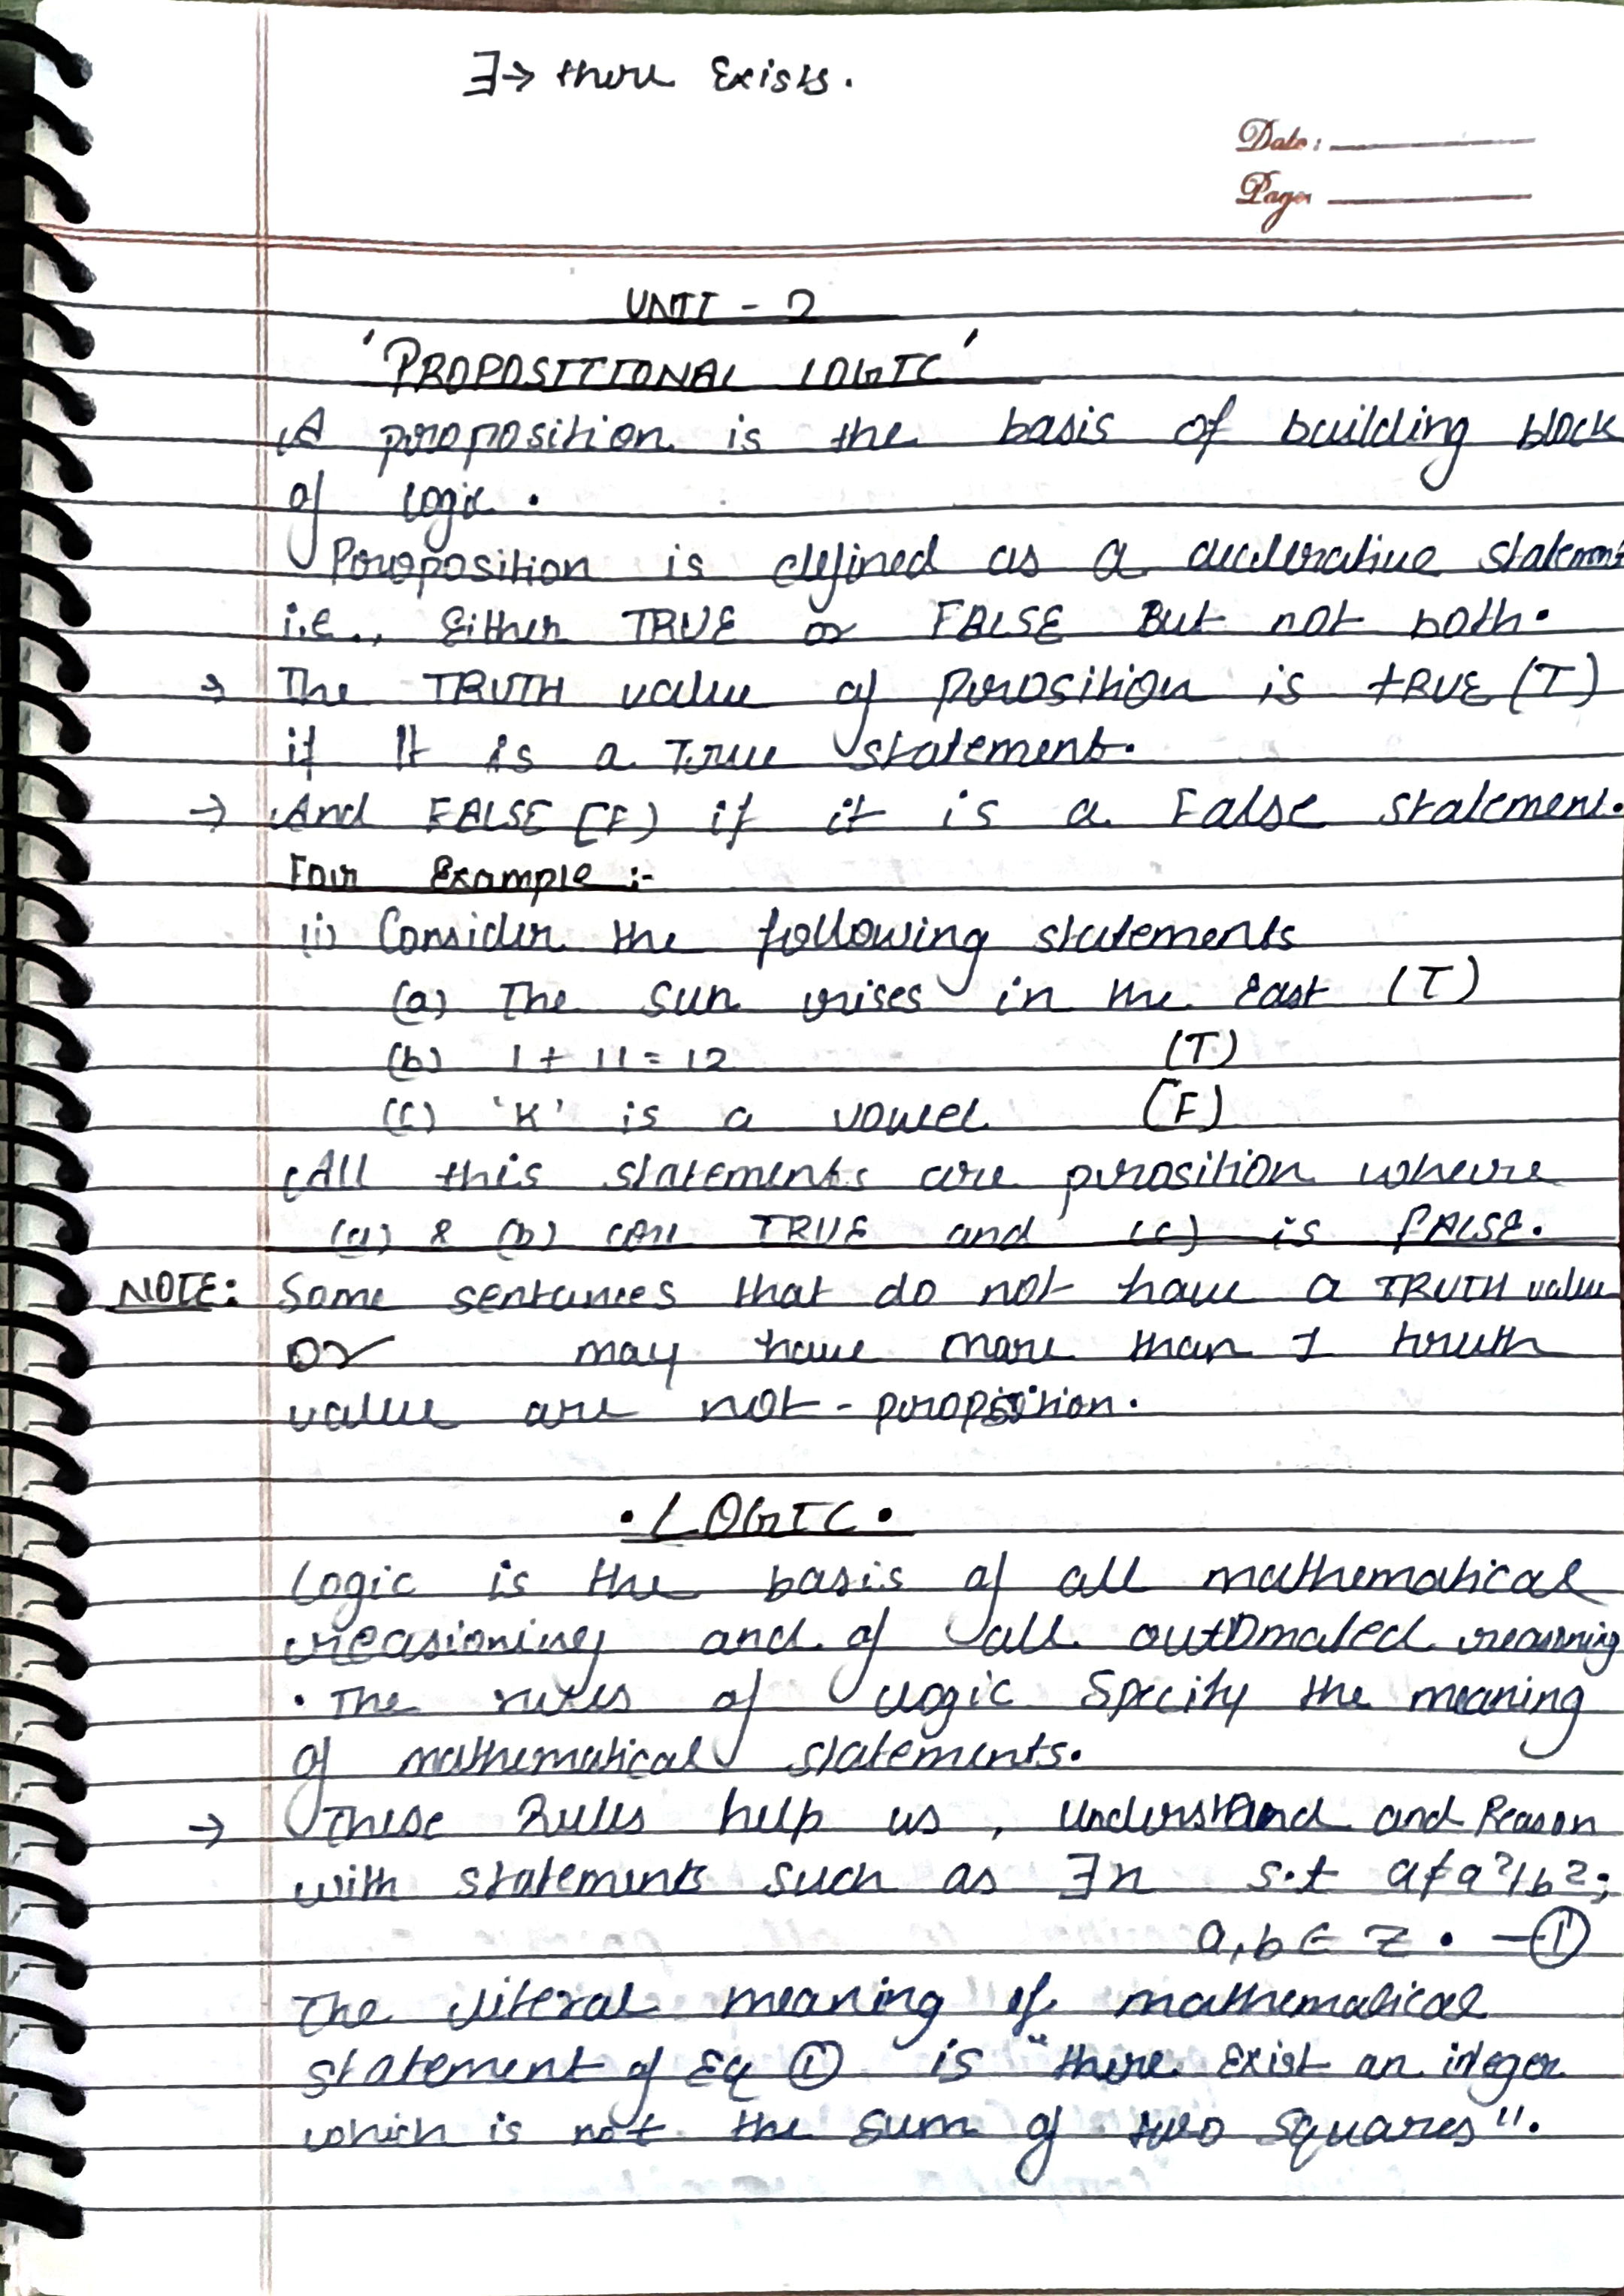 ∃→ there Exists.
Date:
Page:
UNIT - 2
'PROPOSITIONAL LOGIC'
A proposition is the basis of building block
of logic.
Proposition is defined as a declerative statement
i.e., Either TRUE or FALSE But not both.
→ The TRUTH value of prosition is tRUE (T)
if It is a True statement.
→ And FALSE (F) if it is a False statement.
For Example :-
(i) Consider the following statements
(a) The Sun rises in the East (T)
(b) 1 + 11 = 12 (T)
(c) 'K' is a vowel (F)
All this statements are prosition where
(a) & (b) are TRUE and (c) is fALSE.
NOTE: Some sentances that do not have a TRUTH value
or may have more than 1 truth
value are not - proposition.
• LOGIC •
Logic is the basis of all mathematical
reasioning and of all automated reasoning
• The rules of logic Specify the meaning
of mathematical statements.
→ These Rules help us, understand and Reason
with statements such as ∃n s.t a≠a²+b²;
a,b ∈ Z. —①
The literal meaning of mathematical
statement of Eq ① is "there Exist an integer
which is not the sum of two squares".